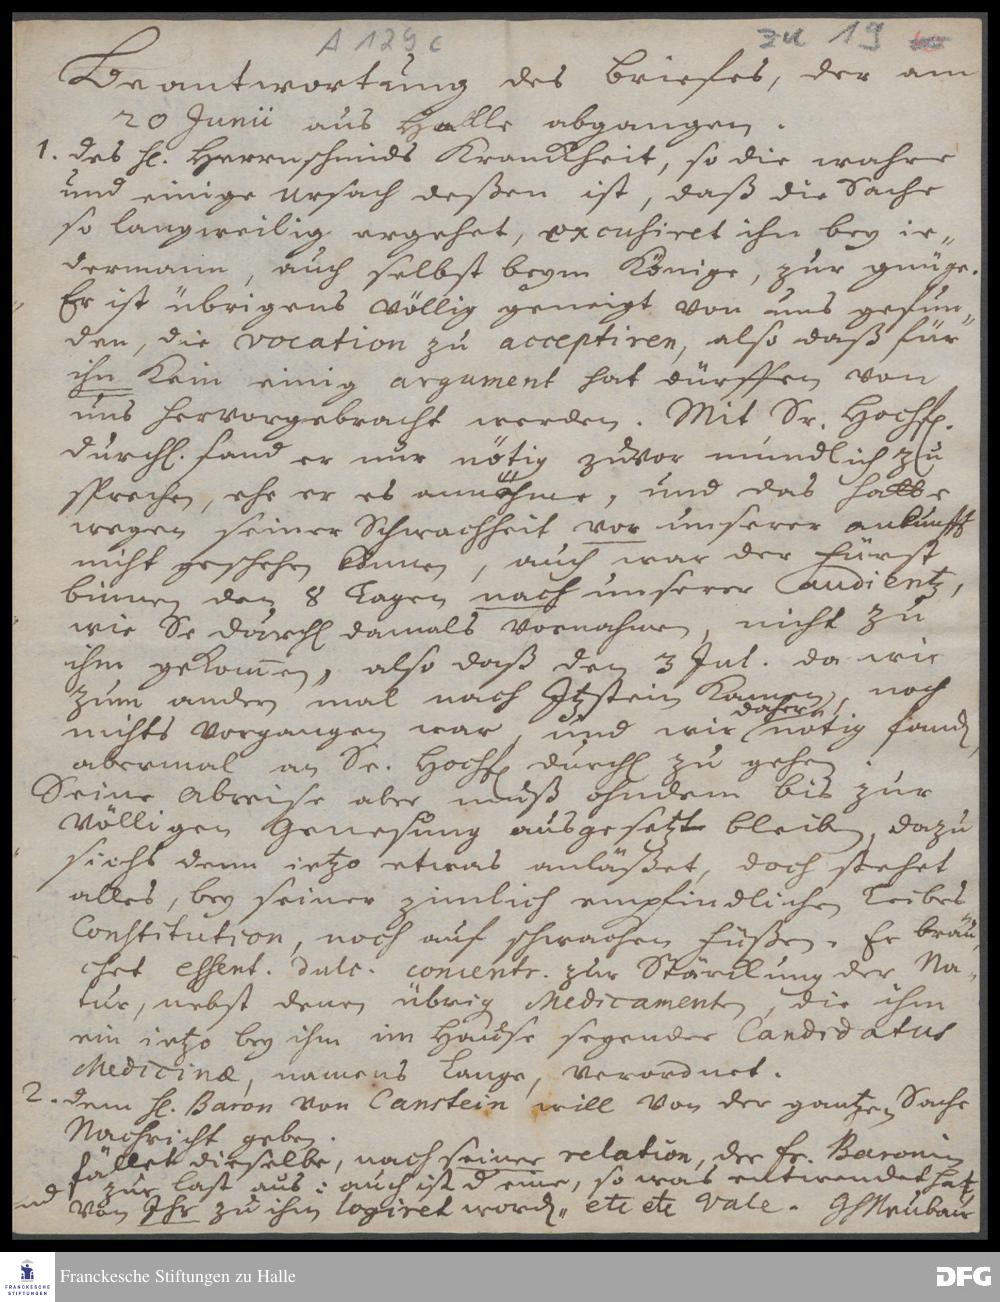 A 129 c
zu 19
Beantwortung des briefes, der am
20 Junii aus Halle abgangen.
1. des H. Herrnschmids Kranckheit, so die wahre
und einige Ursach deßen ist, daß die Sache
so langweilig ergehet, excusiret ihn bey ie„
dermann, auch selbst beym Könige, zur gnüge.
Er ist übrigens völlig geneigt von uns gefun„
den, die vocation zu acceptiren, also daß für
ihn kein einig argument hat dürffen von
uns hervorgebracht werden. Mit Sr. Hochf.
Durchl. fand er nur nötig zuvor mündlich zu
sprechen, ehe er es annähme, und das habe
wegen seiner Schwachheit vor unserer ankunfft
nicht geschehen können, auch war der Fürst
binnen den 8 Tagen nach unserer audientz,
wie Se Durchl damals vornahmen, nicht zu
ihm gekommen, also daß den 3 Jul. da wir
zum andern mal nach Itzstein kamen, noch
nichts vorgangen war, und wir daher nötig fand,
abermal an Sr. Hochf Durchl zu gehen.
Seine Abreise aber muß ohndem bis zur
völligen Genesung ausgesetzt bleiben, dazu
sichs denn ietzo etwas anläßet, doch stehet
alles, bey seiner zimlich empfindlichen Leibes
Constitution, noch auf schwachen Füßen. Er brau„
chet essent. dulc. concentr. zur Stärckung der Na„
tur, nebst denen übrig Medicamenten, die ihm
ein ietzo bey ihm im Hause seyender Candidatus
Medicinæ, namens Lange, verordnet.
2. dem H. Baron von Canstein will von der gantzen Sache
Nachricht geben.
fället dieselbe, nach seiner relation, der Fr. Baronin
zur last aus: auch ist d eine, so was entwendet hat,
von Ihr zu ihm logiret word„ etc etc Vale. GHNeubaur
Franckesche Stiftungen
Franckesche Stiftungen zu Halle
DFG